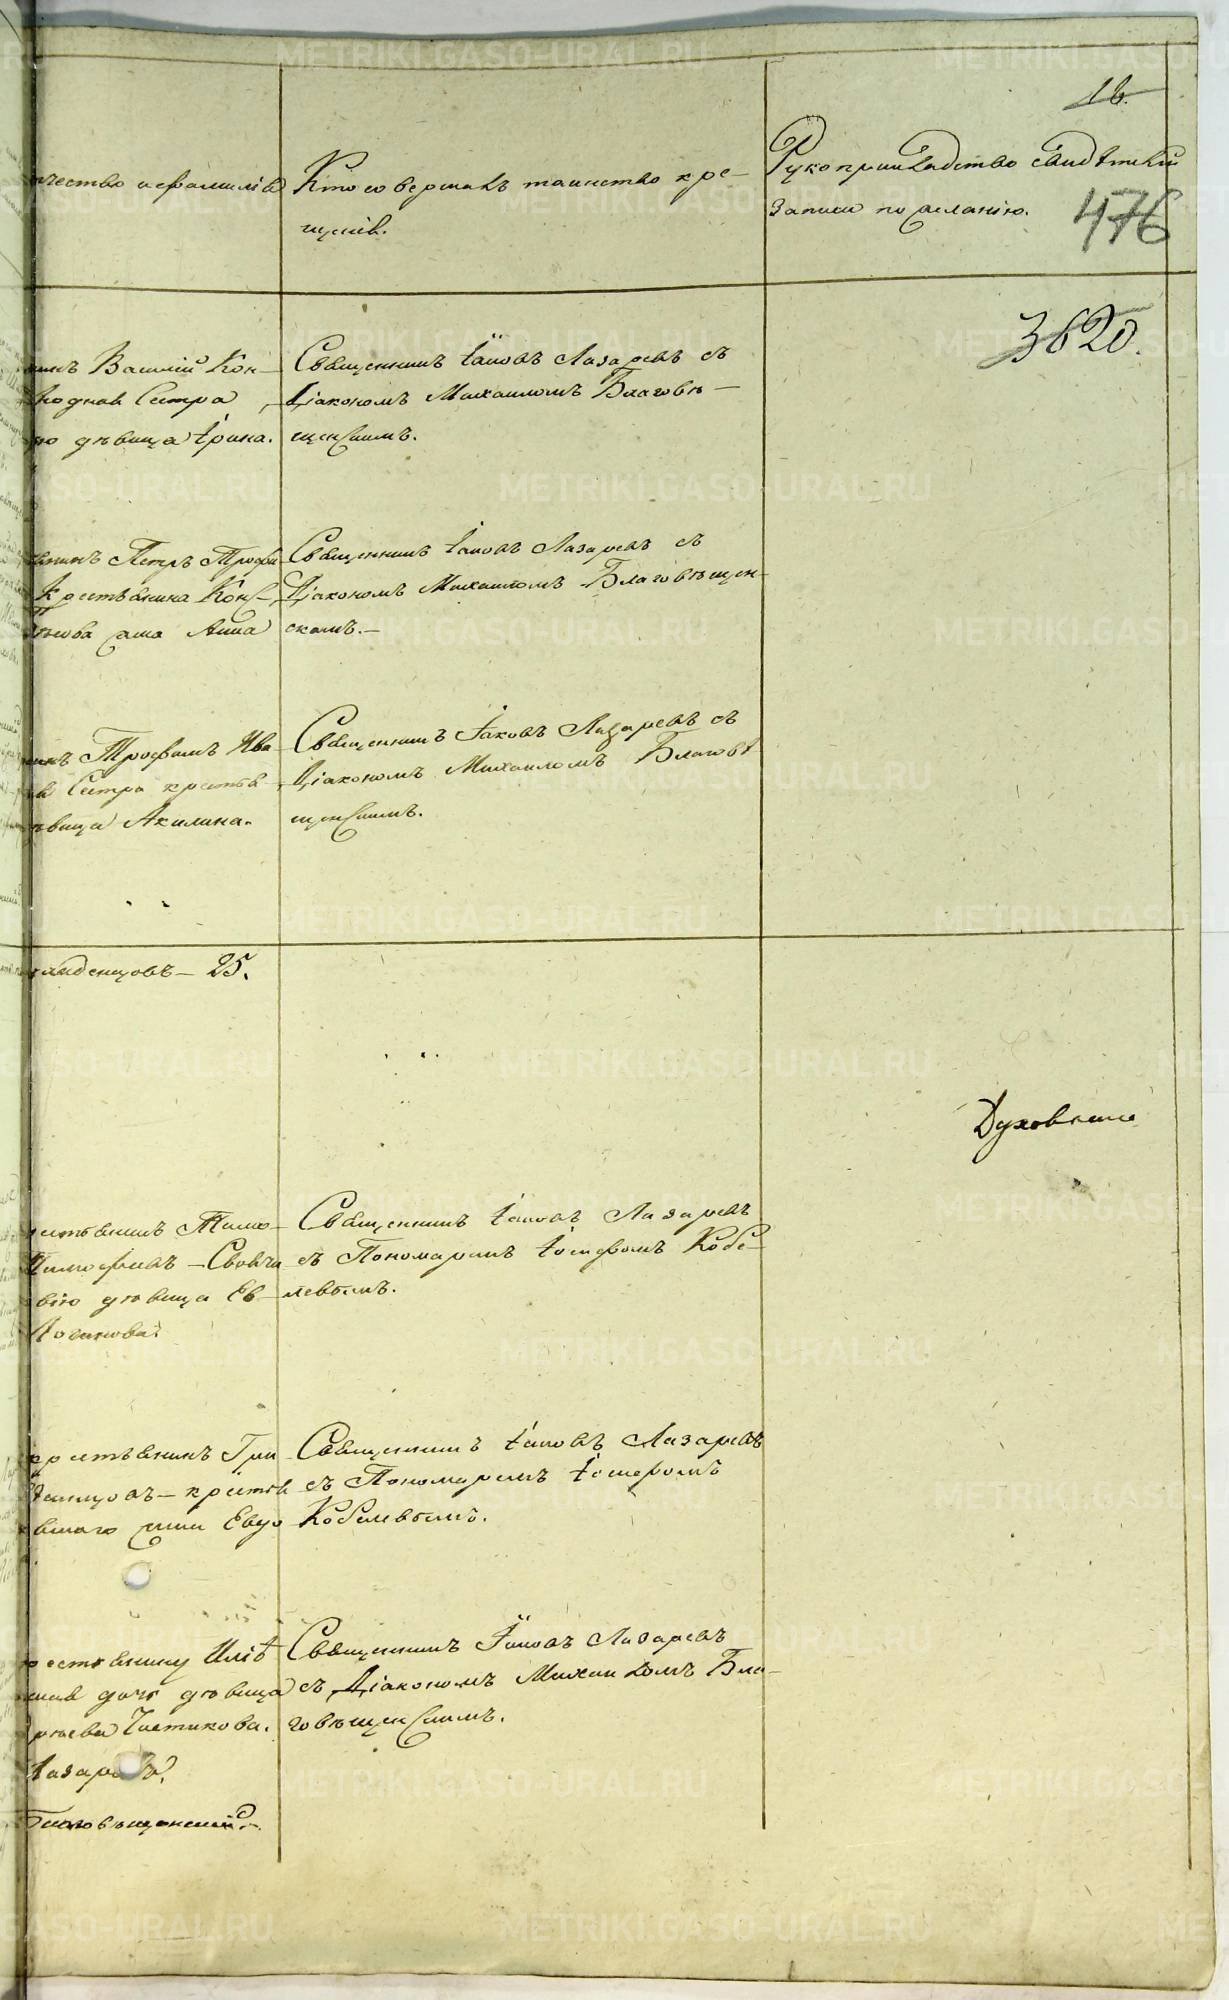 16.
чество и фамилія
Кто совершалъ таинство кре-
щенія.
Рукоприкладство свидѣтелей
записи по желанію.
476
3620.
инъ Василій Кон-
родная Сестра
дѣвица Ірина.
Священникъ Іаковъ Лазаревъ съ
Діакономъ Михаиломъ Благовѣ-
щенскимъ.
янинъ Петръ Трофи
Крестьянина Кон-
жена Анна
Священникъ Іаковъ Лазаревъ съ
Діакономъ Михаиломъ Благовѣщен-
скимъ.-
Трофимъ Ива
Сестра крестья
вица Акилина.
Священникъ Іаковъ Лазаревъ съ
Діакономъ Михаиломъ Благовѣ
щенскимъ.
младенцовъ - 25.
Духовныхъ
рестьянинъ Тимо-
дѣвица Ев-
Логинова.
Священникъ Іаковъ Лазаревъ
съ Пономаремъ Іосифомъ Кобе-
левымъ.
крестьянинъ Гри
жена Евдо
Священникъ Іаковъ Лазаревъ
съ Пономаремъ Іосифомъ
Кобелевымъ.
рестьянину Иліѣ
дочь дѣвица
Чистякова.
Священникъ Іаковъ Лазаревъ
съ Діакономъ Михаиломъ Бла-
говѣщенскимъ.
Лазаревъ.
Благовѣщенскій.
METRIKI.GASO-URAL.RU